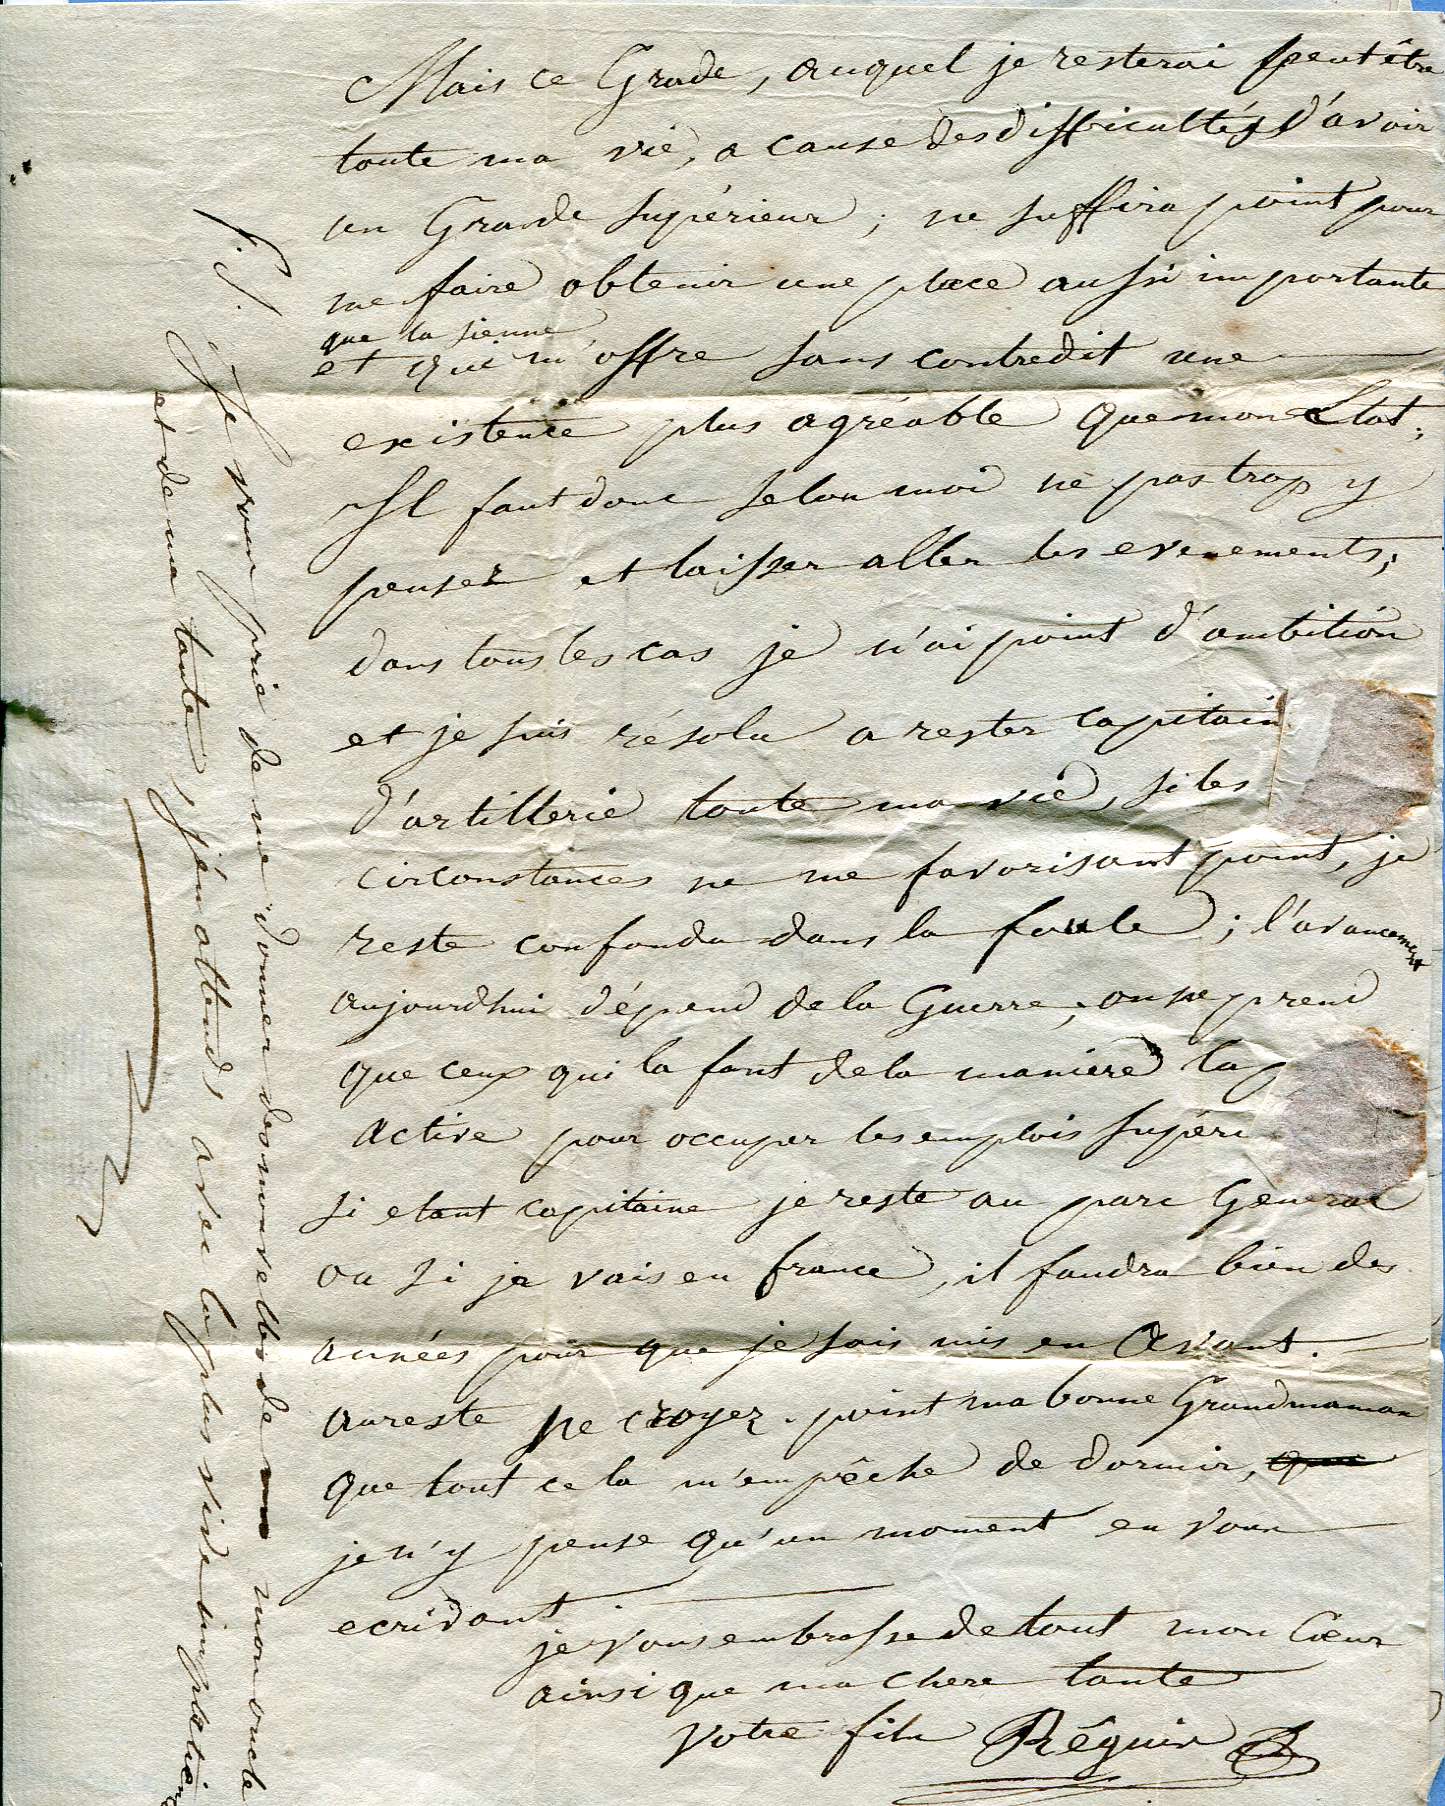 Mais ce Grade, auquel je resterai peut être
toute ma vie, a cause des difficultés d'avoir
un Grade supérieur ; ne suffira point pour
me faire obtenir une place aussi importante
que la sienne
et qui m'offre sans contredit une
existence plus agréable que mon Etat ;
Il faut donc selon moi ne pas trop y
penser et laisser aller les evenements ;
dans tous les cas je n'ai point d'ambition
et je suis résolu a rester capitain
d'artillerie toute ma vie, si les
circonstances ne me favorisant point, je
reste confondu dans la foule ; l'avancement
aujourdhui dépend de la Guerre ; on ne prend
que ceux qui la font de la maniere la p
active pour occuper les emplois supéri
si etant capitaine je reste au parc General
ou si je vais en france, il faudra bien des
années pour que je sois mis en avant.
aureste ne croyez point ma bonne Grandmaman
que tout cela m'empêche de dormir, que
je n'y pense qu'un moment en vous
ecrivant
je vous embrasse de tout mon Cœur
ainsi que ma chere tante
Votre fils Réguis
P.S. Je vous prie de me donner des nouvelles de mon oncle
et de ma tante, j'en attends avec la plus vive impatience